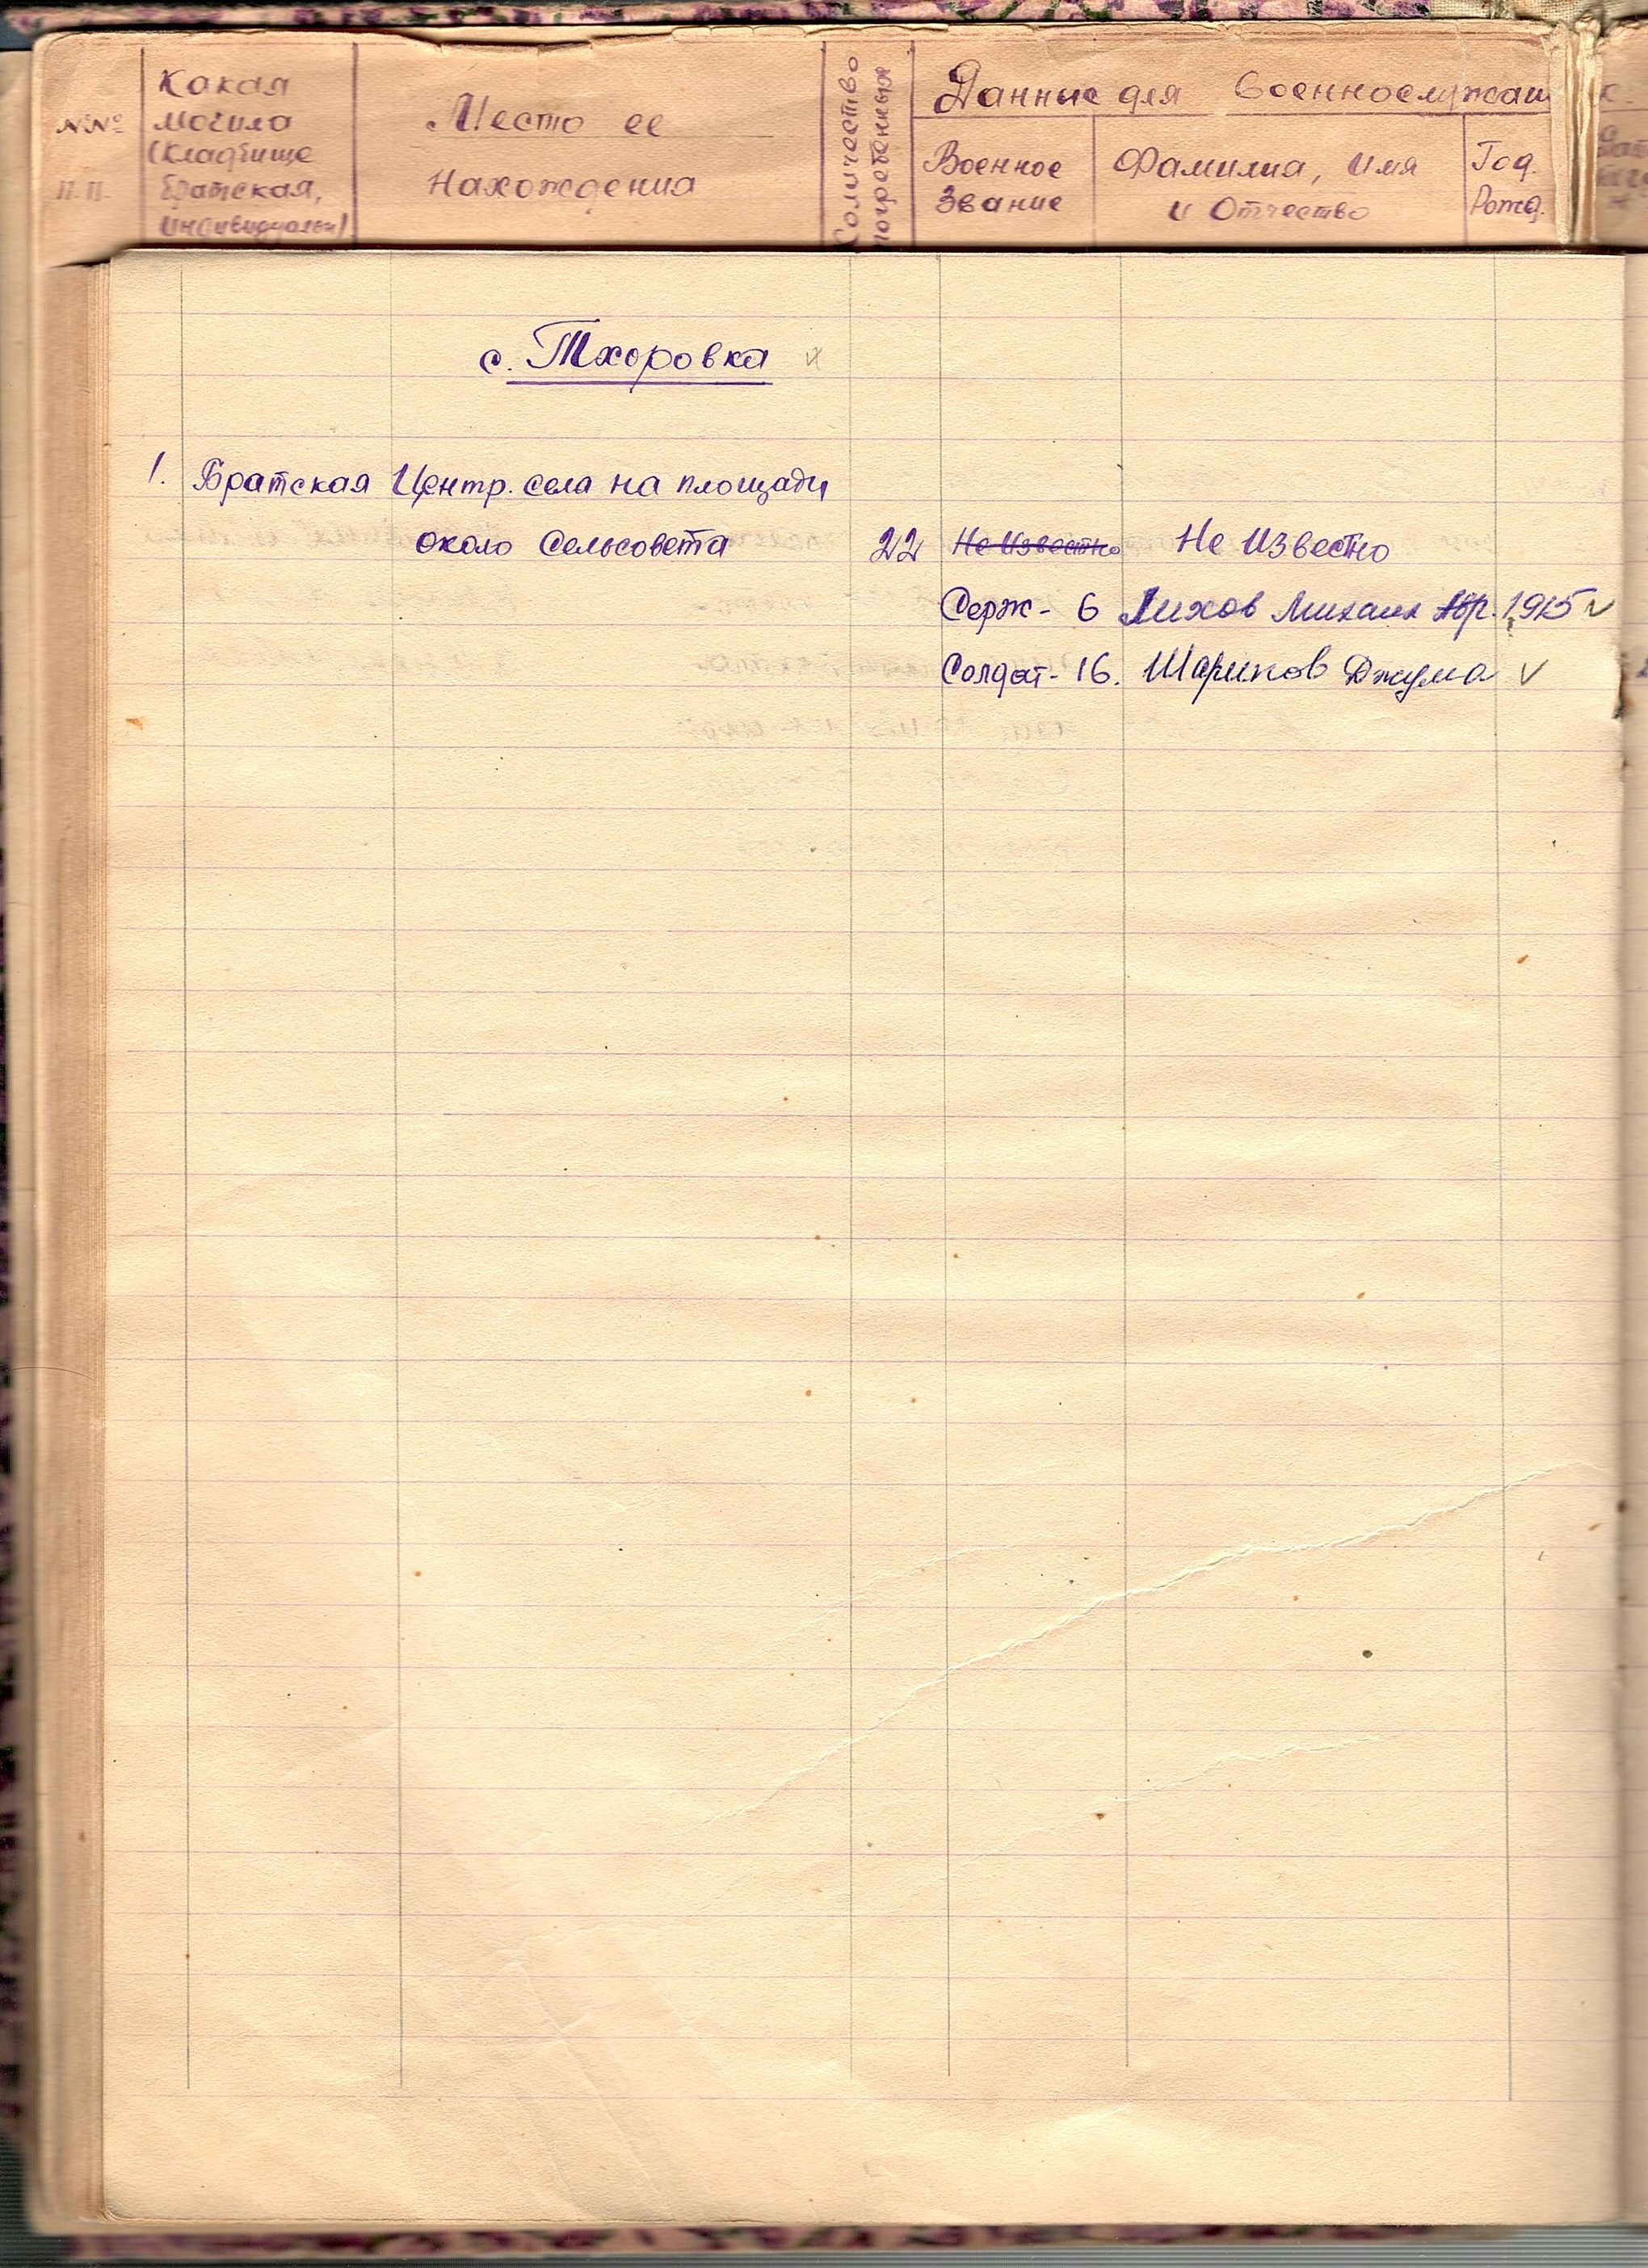 №№ п.п.
Какая
могила
(кладбище
братская,
индивидуальн)
Место ее
Нахождения
Количество
погребенных
Данные для военнослужащ
Военное
Звание
Фамилия, имя
и Отчество
Год.
Рожд.
с. Тхоровка
1. Братская Центр. села на площади
около Сельсовета 22 Не Известно Не Известно
Серж - 6 Лихов Михаил 1915 v
Солдат - 16. Шарипов Джума v